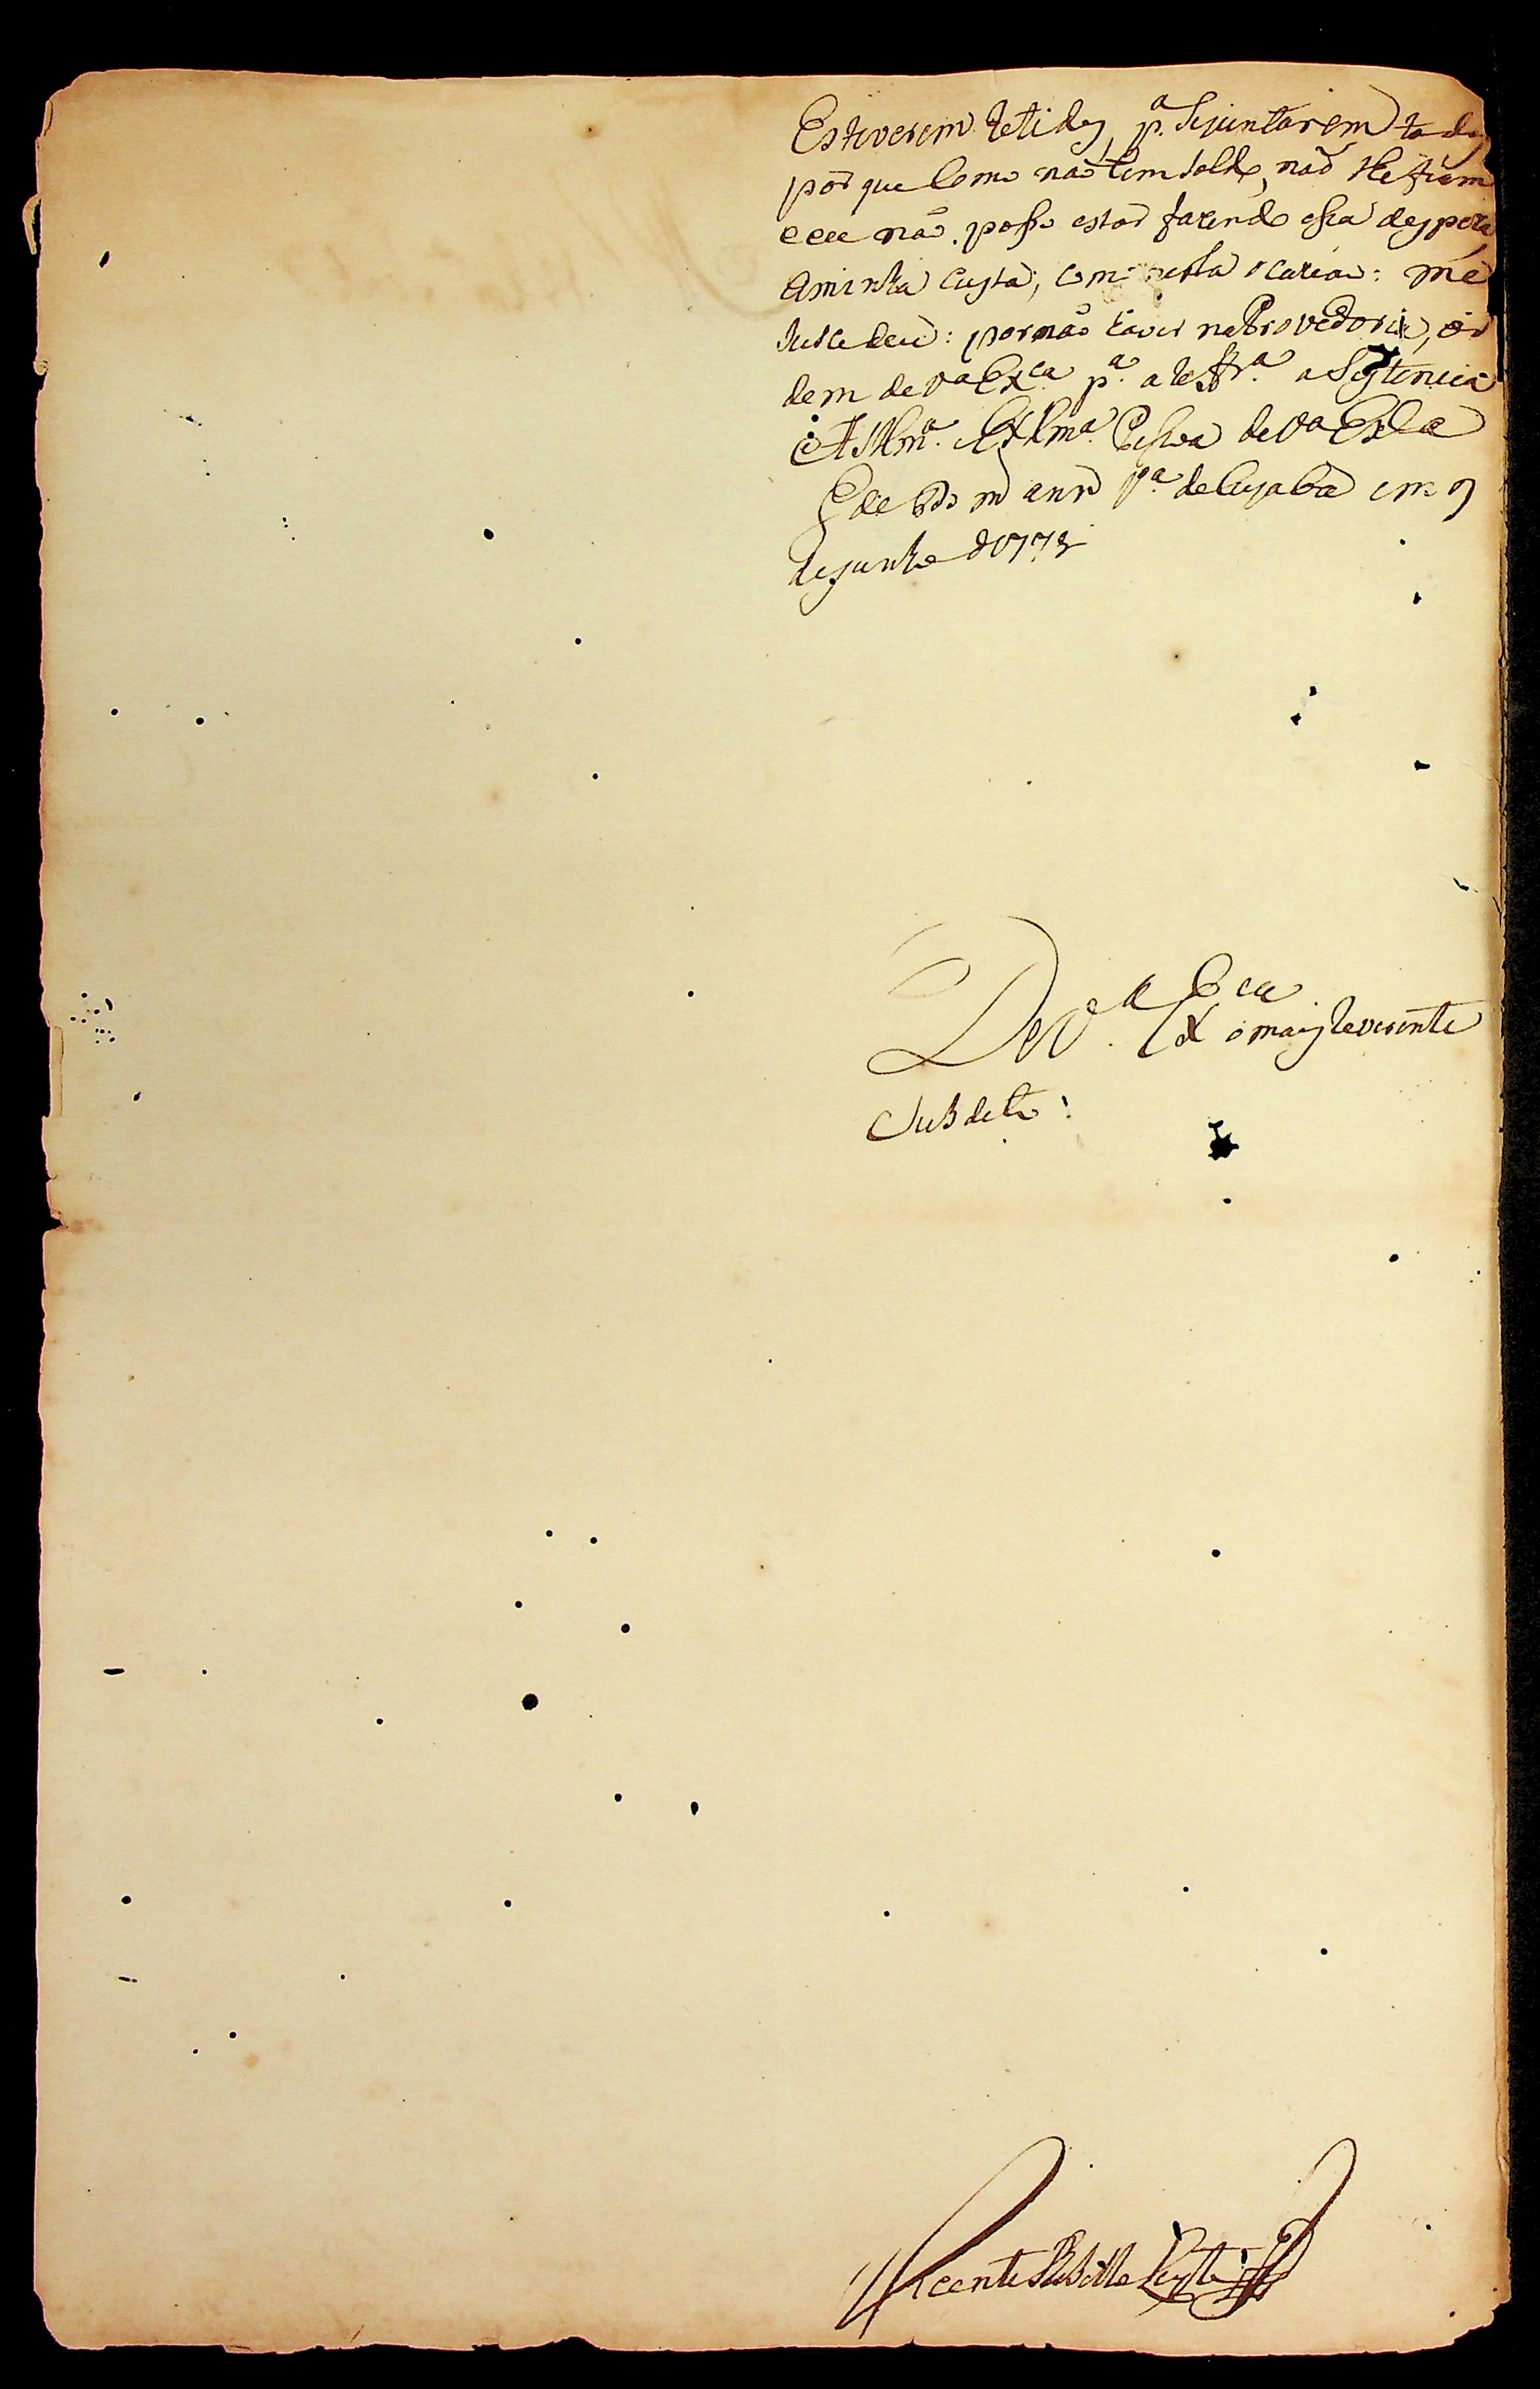 Estiverem retidos, p.ª Sejuntarem todos
por que Como não tem soldo, não lhe fiam
e eu não posso estar fazendo essa despeza
aminha Custa, como nesta ocazião: me
sucedeu: por não haver na Provedoria, or
dem de V.ª Ex.ca p.ª a desta a Sistencia
A Ill.mª e Ex.mª Pessoa de V.ª Ex.ca
G.de Ds m annos V.ª de Cuyabá em 9
de Junho de 1773
De V.ª Ex.ca o mais Reverente
Subdito:
Vicente Rebello Leyte